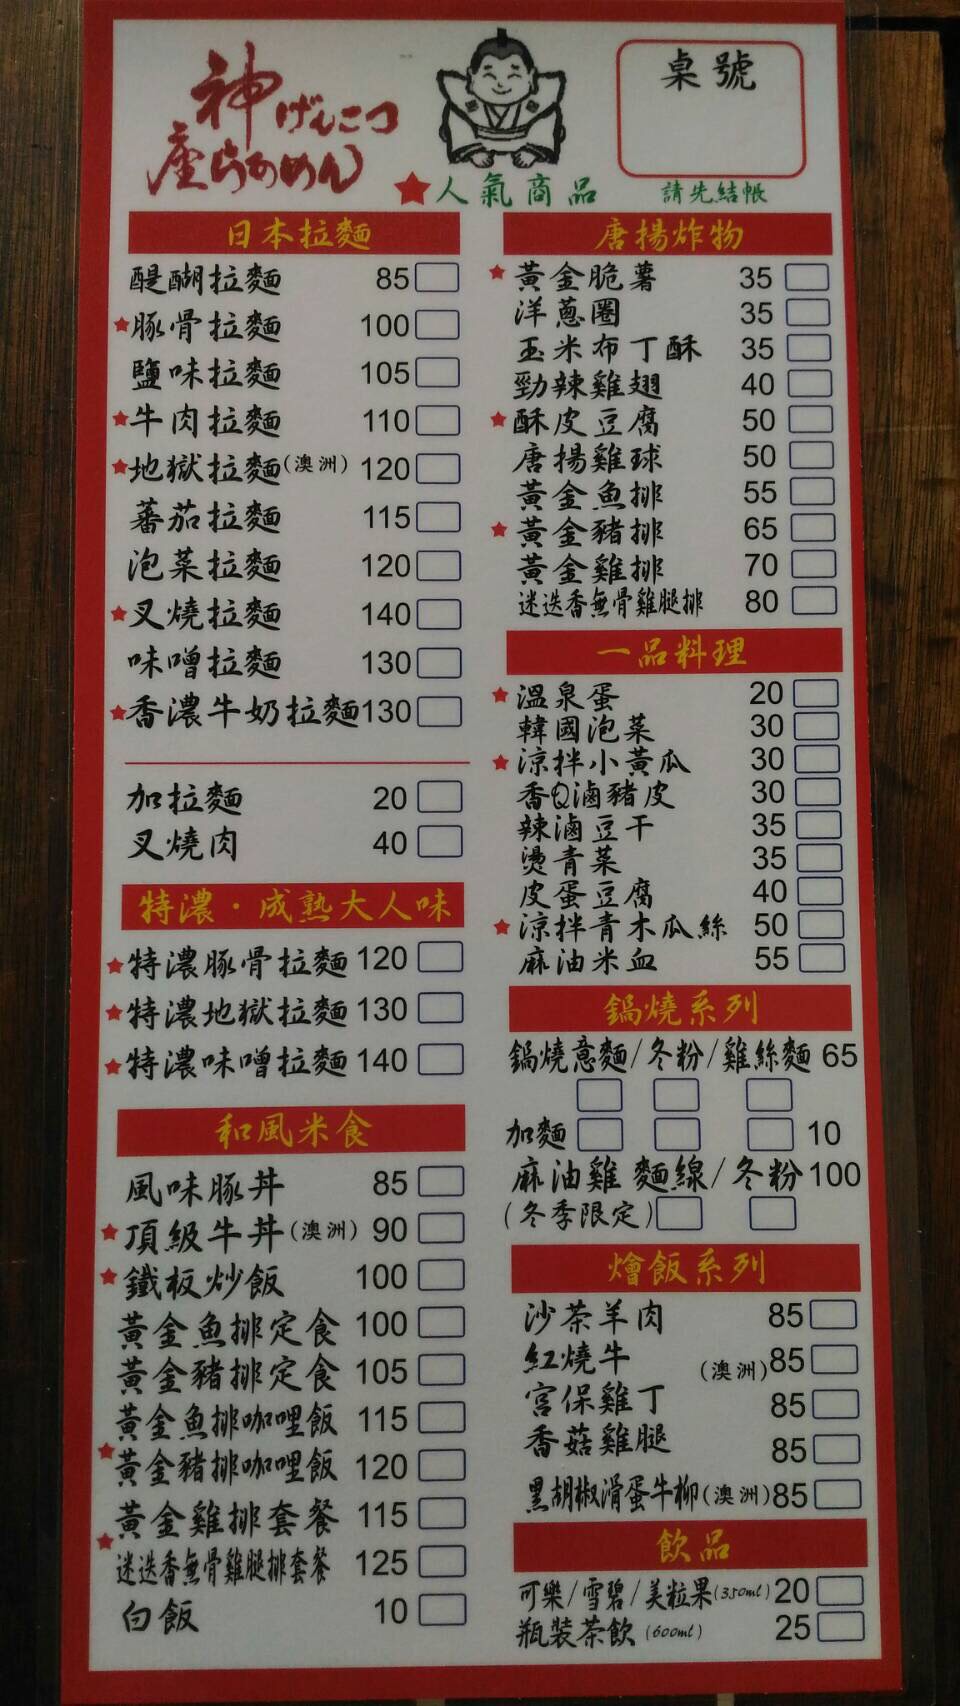 神げんこつ
座らあめん
桌號
★人氣商品
請先結帳
日本拉麵
醍醐拉麵 85
★豚骨拉麵 100
鹽味拉麵 105
★牛肉拉麵 110
★地獄拉麵(澳洲) 120
蕃茄拉麵 115
泡菜拉麵 120
★叉燒拉麵 140
味噌拉麵 130
★香濃牛奶拉麵 130
加拉麵 20
叉燒肉 40
特濃・成熟大人味
★特濃豚骨拉麵 120
★特濃地獄拉麵 130
★特濃味噌拉麵 140
和風米食
風味豚丼 85
★頂級牛丼(澳洲) 90
★鐵板炒飯 100
黃金魚排定食 100
黃金豬排定食 105
黃金魚排咖哩飯 115
★黃金豬排咖哩飯 120
黃金雞排套餐 115
★迷迭香無骨雞腿排套餐 125
白飯 10
唐揚炸物
★黃金脆薯 35
洋蔥圈 35
玉米布丁酥 35
勁辣雞翅 40
★酥皮豆腐 50
唐揚雞球 50
黃金魚排 55
★黃金豬排 65
黃金雞排 70
迷迭香無骨雞腿排 80
一品料理
★溫泉蛋 20
韓國泡菜 30
★涼拌小黃瓜 30
香Q滷豬皮 30
辣滷豆干 35
燙青菜 35
皮蛋豆腐 40
★涼拌青木瓜絲 50
麻油米血 55
鍋燒系列
鍋燒意麵/冬粉/雞絲麵 65
加麵 10
麻油雞 麵線/冬粉 100
(冬季限定)
燴飯系列
沙茶羊肉 85
紅燒牛 (澳洲) 85
宮保雞丁 85
香菇雞腿 85
黑胡椒滑蛋牛柳(澳洲) 85
飲品
可樂/雪碧/美粒果(350ml) 20
瓶裝茶飲(600ml) 25